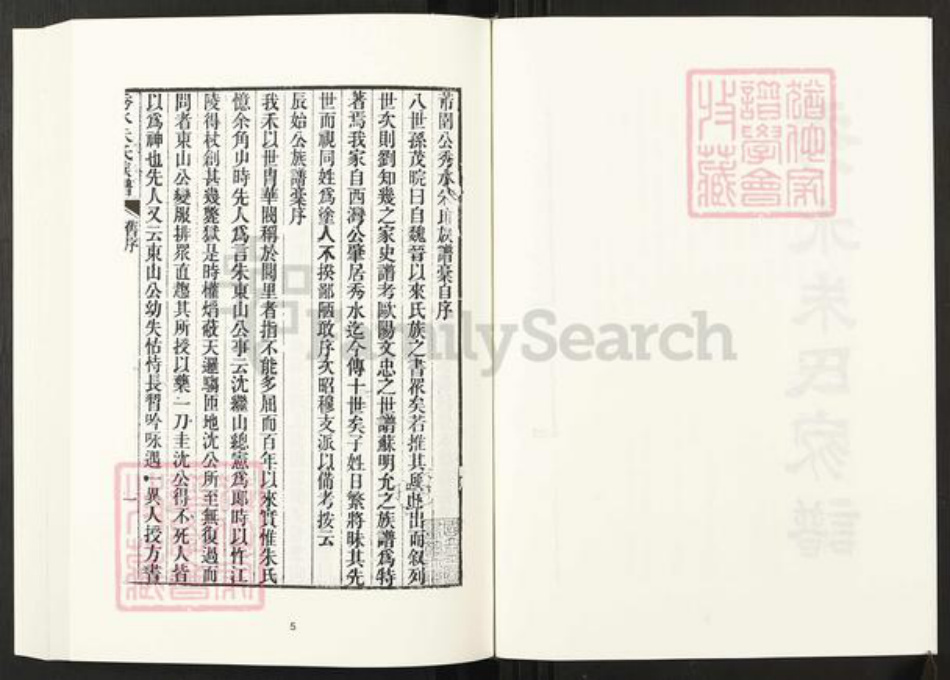 芾圃公秀水朱氏族譜稾自序
八世孫茂晥曰自魏晉以來氏族之書眾矣若推其所自出而叙列
世次則劉知幾之家史譜考歐陽文忠之世譜蘇明允之族譜為特
著焉我家自西灣公肇居秀水迄今傳十世矣子姓日繁將昧其先
世而視同姓為塗人不揆鄙陋敢序次昭穆支派以備考按云
辰始公族譜稾序
我禾以世胄華閥稱於閭里者指不能多屈而百年以來實惟朱氏
憶余角丱時先人為言朱東山公事云沈繼山總憲為郎時以忤江
陵得杖創甚幾斃獄是時權熖蔽天邏騶匝地沈公所至無復過而
問者東山公變服排眾直趨其所授以藥一刀圭沈公得不死人皆
以為神也先人又云東山公幼失怙恃長習吟咏遇一異人授方書
秀水朱氏家譜
舊序
一
5
猶他家
譜學會
收藏
FamilySearch